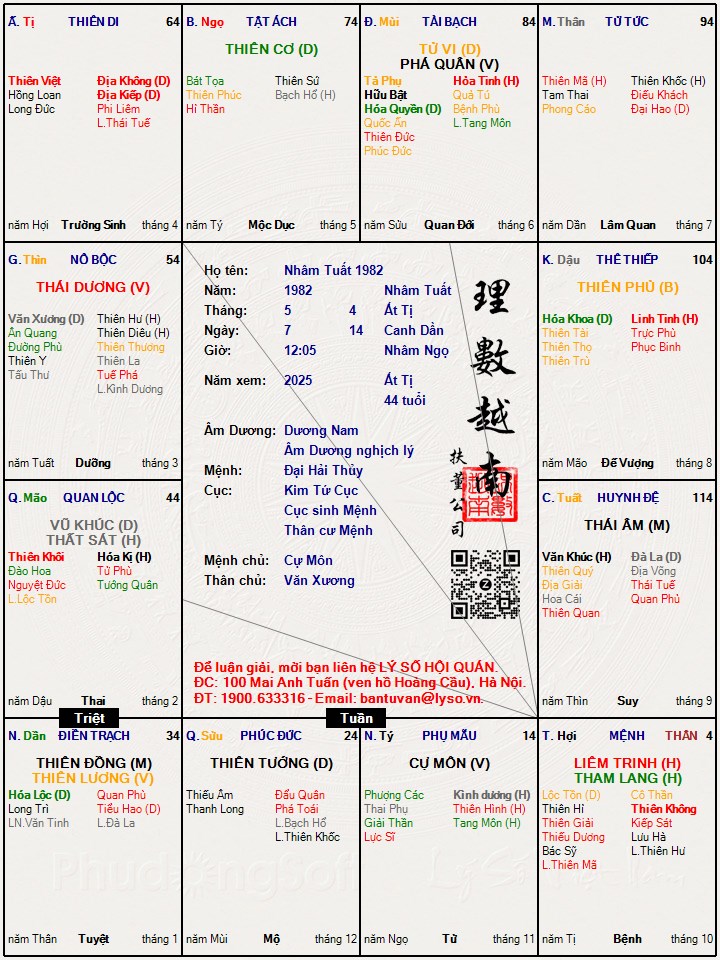 Ấ. Tị THIÊN DI 64
Thiên Việt Địa Không (D)
Hồng Loan Địa Kiếp (D)
Long Đức Phi Liêm
L.Thái Tuế
năm Hợi Trường Sinh tháng 4
B. Ngọ TẬT ÁCH 74
THIÊN CƠ (D)
Bát Tọa Thiên Sứ
Thiên Phúc Bạch Hổ (H)
Hỉ Thần
năm Tý Mộc Dục tháng 5
Đ. Mùi TÀI BẠCH 84
TỬ VI (D)
PHÁ QUÂN (V)
Tả Phụ Hỏa Tinh (H)
Hữu Bật Quả Tú
Hóa Quyền (D) Bệnh Phù
Quốc Ấn L.Tang Môn
Thiên Đức
Phúc Đức
năm Sửu Quan Đới tháng 6
M. Thân TỬ TỨC 94
Thiên Mã (H) Thiên Khốc (H)
Tam Thai Điếu Khách
Phong Cáo Đại Hao (D)
năm Dần Lâm Quan tháng 7
G. Thìn NÔ BỘC 54
THÁI DƯƠNG (V)
Văn Xương (D) Thiên Hư (H)
Ân Quang Thiên Diêu (H)
Đường Phù Thiên Thương
Thiên Y Thiên La
Tấu Thư Tuế Phá
L.Kình Dương
năm Tuất Dưỡng tháng 3
Họ tên: Nhâm Tuất 1982
Năm: 1982 Nhâm Tuất
Tháng: 5 4 Ất Tị
Ngày: 7 14 Canh Dần
Giờ: 12:05 Nhâm Ngọ
Năm xem: 2025 Ất Tị
44 tuổi
Âm Dương: Dương Nam
Âm Dương nghịch lý
Mệnh: Đại Hải Thủy
Cục: Kim Tứ Cục
Cục sinh Mệnh
Thân cư Mệnh
Mệnh chủ: Cự Môn
Thân chủ: Văn Xương
理數越南
扶董公司
Để luận giải, mời bạn liên hệ LÝ SỐ HỘI QUÁN.
ĐC: 100 Mai Anh Tuấn (ven hồ Hoàng Cầu), Hà Nội.
ĐT: 1900.633316 - Email: bantuvan@lyso.vn.
K. Dậu THÊ THIẾP 104
THIÊN PHỦ (B)
Hóa Khoa (D) Linh Tinh (H)
Thiên Tài Trực Phù
Thiên Thọ Phục Binh
Thiên Trù
năm Mão Đế Vượng tháng 8
Q. Mão QUAN LỘC 44
VŨ KHÚC (D)
THẤT SÁT (H)
Thiên Khôi Hóa Kị (H)
Đào Hoa Tử Phù
Nguyệt Đức Tướng Quân
L.Lộc Tồn
năm Dậu Thai tháng 2
C. Tuất HUYNH ĐỆ 114
THÁI ÂM (M)
Văn Khúc (H) Đà La (D)
Thiên Quý Địa Võng
Địa Giải Thái Tuế
Hoa Cái Quan Phủ
Thiên Quan
năm Thìn Suy tháng 9
Triệt
Tuần
N. Dần ĐIỀN TRẠCH 34
THIÊN ĐỒNG (M)
THIÊN LƯƠNG (V)
Hóa Lộc (D) Quan Phù
Long Trì Tiểu Hao (D)
LN.Văn Tinh L.Đà La
năm Thân Tuyệt tháng 1
Q. Sửu PHÚC ĐỨC 24
THIÊN TƯỚNG (D)
Thiếu Âm Đẩu Quân
Thanh Long Phá Toái
L.Bạch Hổ
L.Thiên Khốc
năm Mùi Mộ tháng 12
N. Tý PHỤ MẪU 14
CỰ MÔN (V)
Phượng Các Kình dương (H)
Thai Phụ Thiên Hình (H)
Giải Thần Tang Môn (H)
Lực Sĩ
năm Ngọ Tử tháng 11
T. Hợi MỆNH THÂN 4
LIÊM TRINH (H)
THAM LANG (H)
Lộc Tồn (D) Cô Thần
Thiên Hỉ Thiên Không
Thiên Giải Kiếp Sát
Thiếu Dương Lưu Hà
Bác Sỹ L.Thiên Hư
L.Thiên Mã
năm Tị Bệnh tháng 10